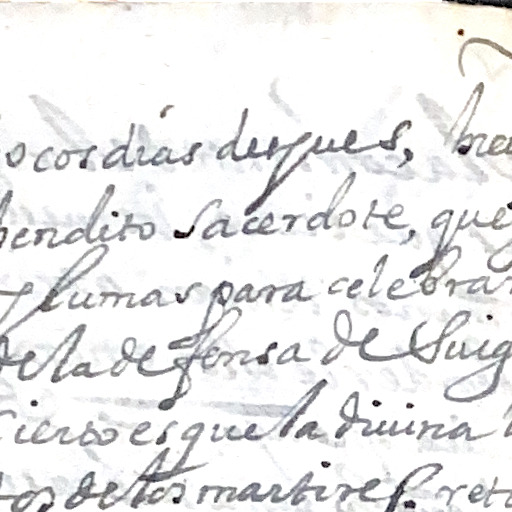 ocos dias despues, 
bendito sacerdote, que
plumas para celebrar
de la defensa de Suig
cierto es que la divina
tos de los martires. reto